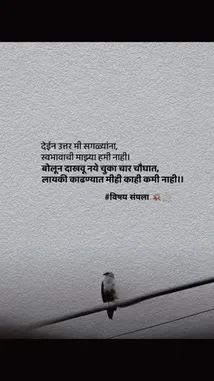 देईन उत्तर मी सगळ्यांना,
स्वभावाची माझ्या हमी नाही।
बोलून दाखवू नये चुका चार चौघात,
लायकी काढण्यात मीही काही कमी नाही।।
#विषय संपला